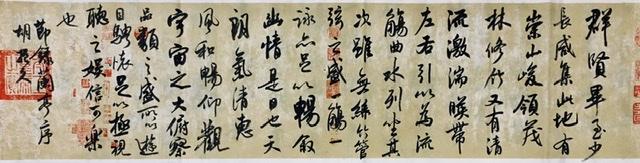 群賢畢至少
長咸集此地有
崇山峻領茂
林修竹又有清
流激湍暎帶
左右引以為流
觴曲水列坐其
次雖無絲竹管
弦之盛一觴一
詠亦足以暢叙
幽情是日也天
朗氣清惠
風和暢仰觀
宇宙之大俯察
品類之盛所以遊
目騁懷足以極視
聽之娛信可樂
也
節錄蘭亭序